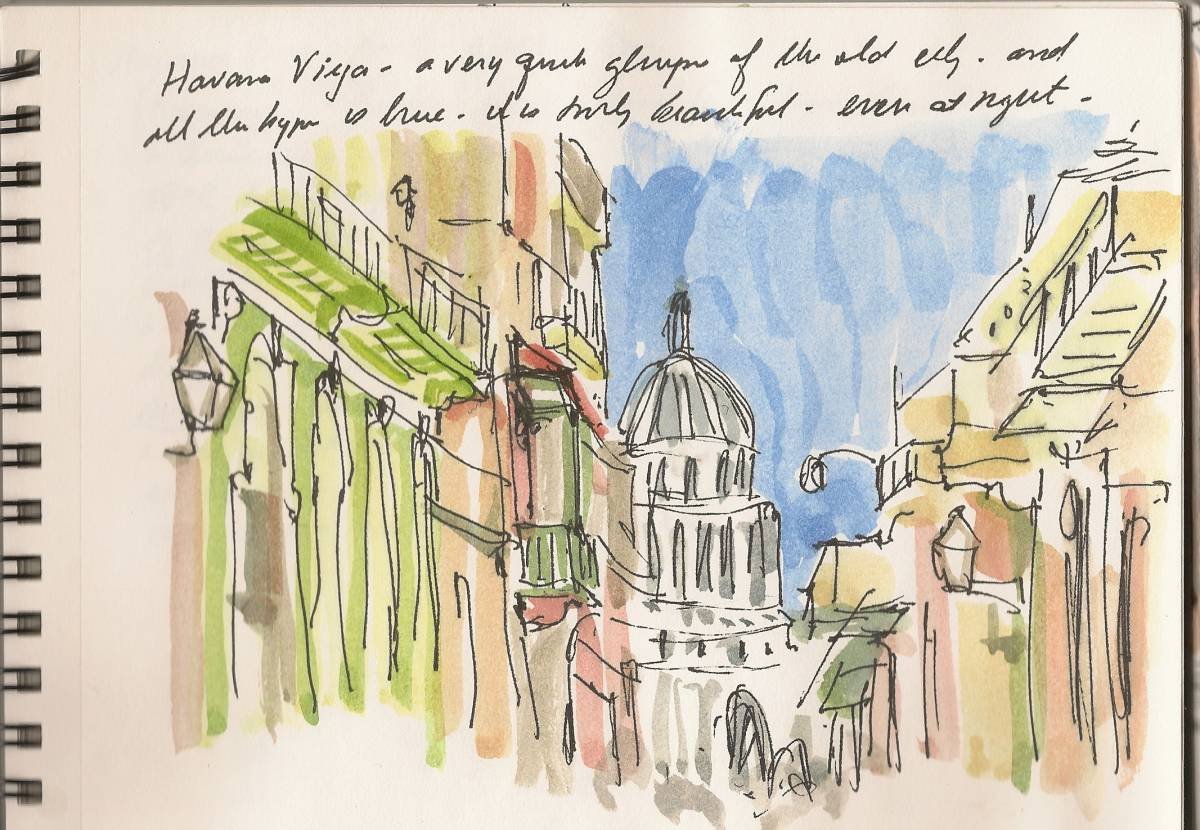 Havana Vieja - a very quick glimpse of the old city. and
all the hype is true. it is truly beautiful - even at night -